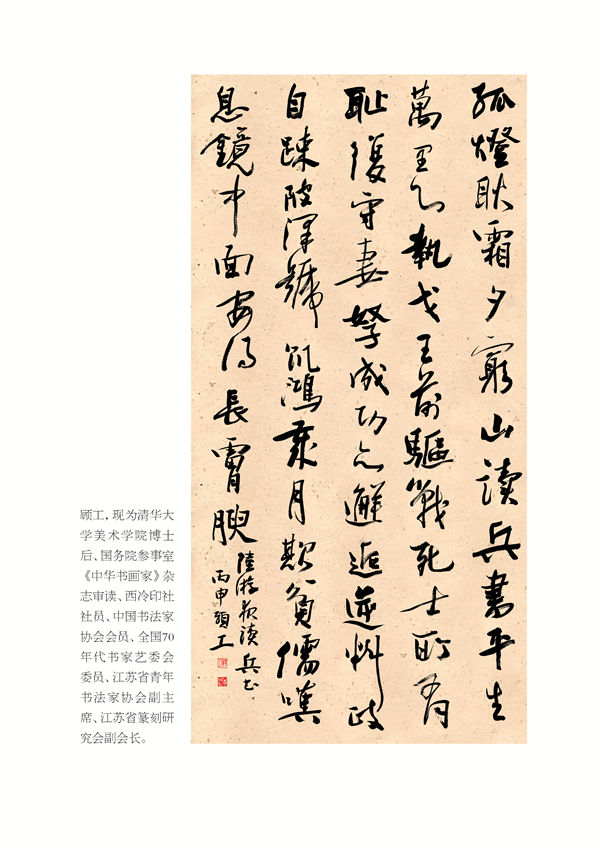 孤燈耿霜夕窮山讀兵書平生
萬里心執戈王前驅戰死士所有
恥復守妻孥成功亦邂逅逆料政
自疎陂澤號飢鴻歲月欺貧儒嘆
息鏡中面安得長膚腴
陸游夜讀兵书
丙申顧工
顾工,现为清华大
学美术学院博士
后、国务院参事室
《中华书画家》杂
志审读、西泠印社
社员、中国书法家
协会会员、全国70
年代书家艺委会
委员、江苏省青年
书法家协会副主
席、江苏省篆刻研
究会副会长。